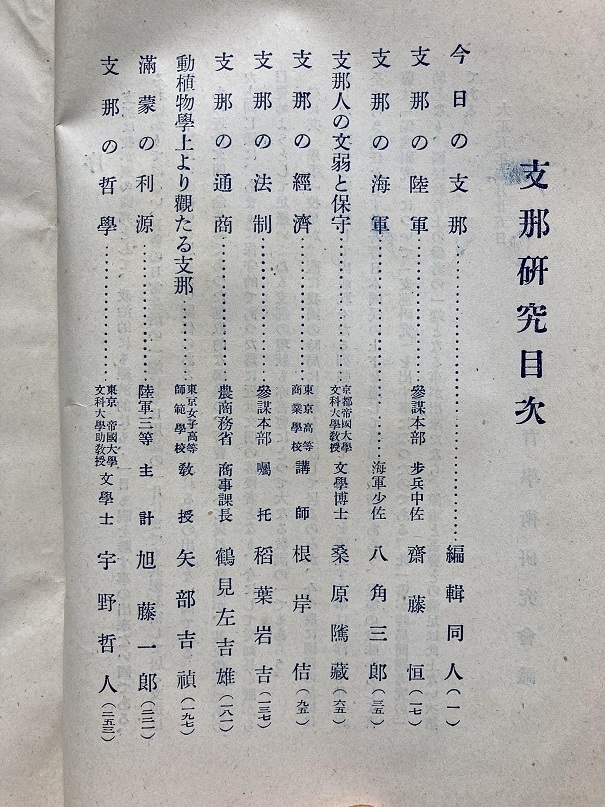 支那研究目次
今日の支那……編輯同人(一)
支那の陸軍……參謀本部 步兵中佐 齋藤恒(一七)
支那の海軍……海軍少佐 八角三郎(三五)
支那人の文弱と保守……京都帝國大學文科大學敎授 文學博士 桑原隲藏(六五)
支那の經濟……東京高等商業學校 講師 根岸佶(九五)
支那の法制……參謀本部 囑托 稻葉岩吉(一三七)
支那の通商……農商務省 商事課長 鶴見左吉雄(一八一)
動植物學上より觀たる支那……東京女子高等師範學校 敎授 矢部吉禎(一九七)
滿蒙の利源……陸軍三等主計 旭藤一郎(二三一)
支那の哲學……東京帝國大學文科大學助敎授 文學士 宇野哲人(二五三)